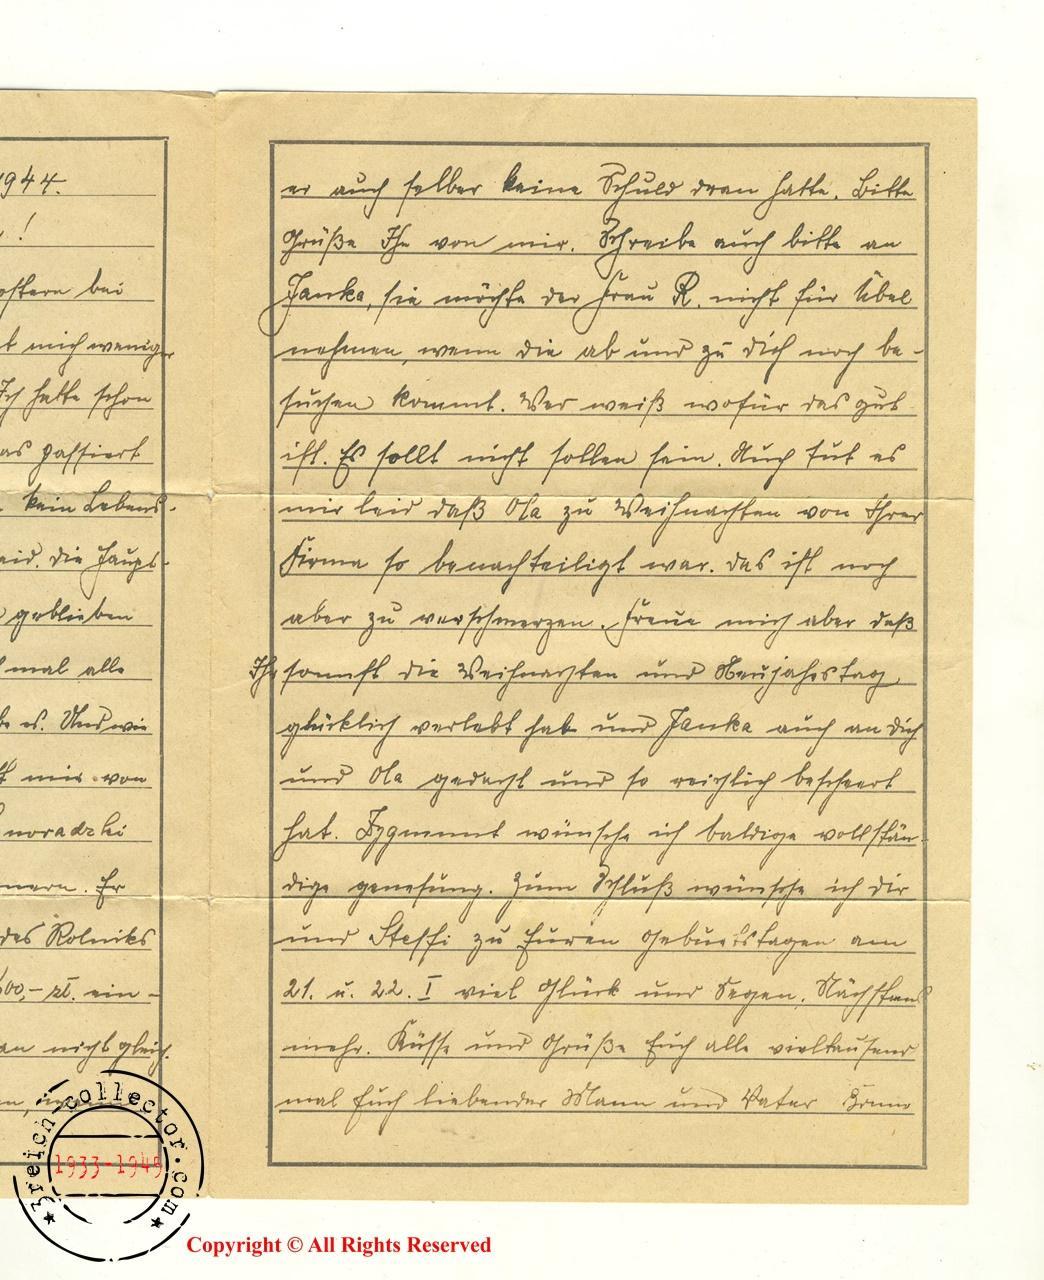 1944.
!
ostern bei
t mich weniger
Ich hatte schon
as passiert
kein Lebens-
eid. die Haupt-
geblieben
mal alle
es. Und wie
mir von
noradzki
mern. Er
des Rolniks
00,- zl. ein-
an nicht gleich.
er auch selber keine Schuld dran hatte. Bitte
Grüße Ihn von mir. Schreibe auch bitte an
Janka, sie möchte der Frau R. nicht für Übel
nehmen, wenn die ab und zu Dich noch be-
suchen kommt. Wer weiß wofür das gut
ist. Es sollt nicht sollen sein. Auch tut es
mir leid daß Ola zu Weihnachten von Ihrer
Firma so benachteiligt war. das ist noch
aber zu verschmerzen. Freue mich aber daß
Ihr sonnst die Weihnachten und Neujahrstag
glücklich verlebt hab und Janka auch an Dich
und Ola gedacht und so reichlich bescheert
hat. Zygmunt wünsche ich baldige vollstän-
dige genesung. Zum Schluß wünsche ich dir
und Steffi zu Euren Geburtstagen am
21. u. 22. I viel Glück und Segen. Nächstens
mehr. Küsse und Grüße Euch alle vieltausend
mal Euch liebender Mann und Vater Bruno
3reich-collector.com
1933-1945
Copyright © All Rights Reserved